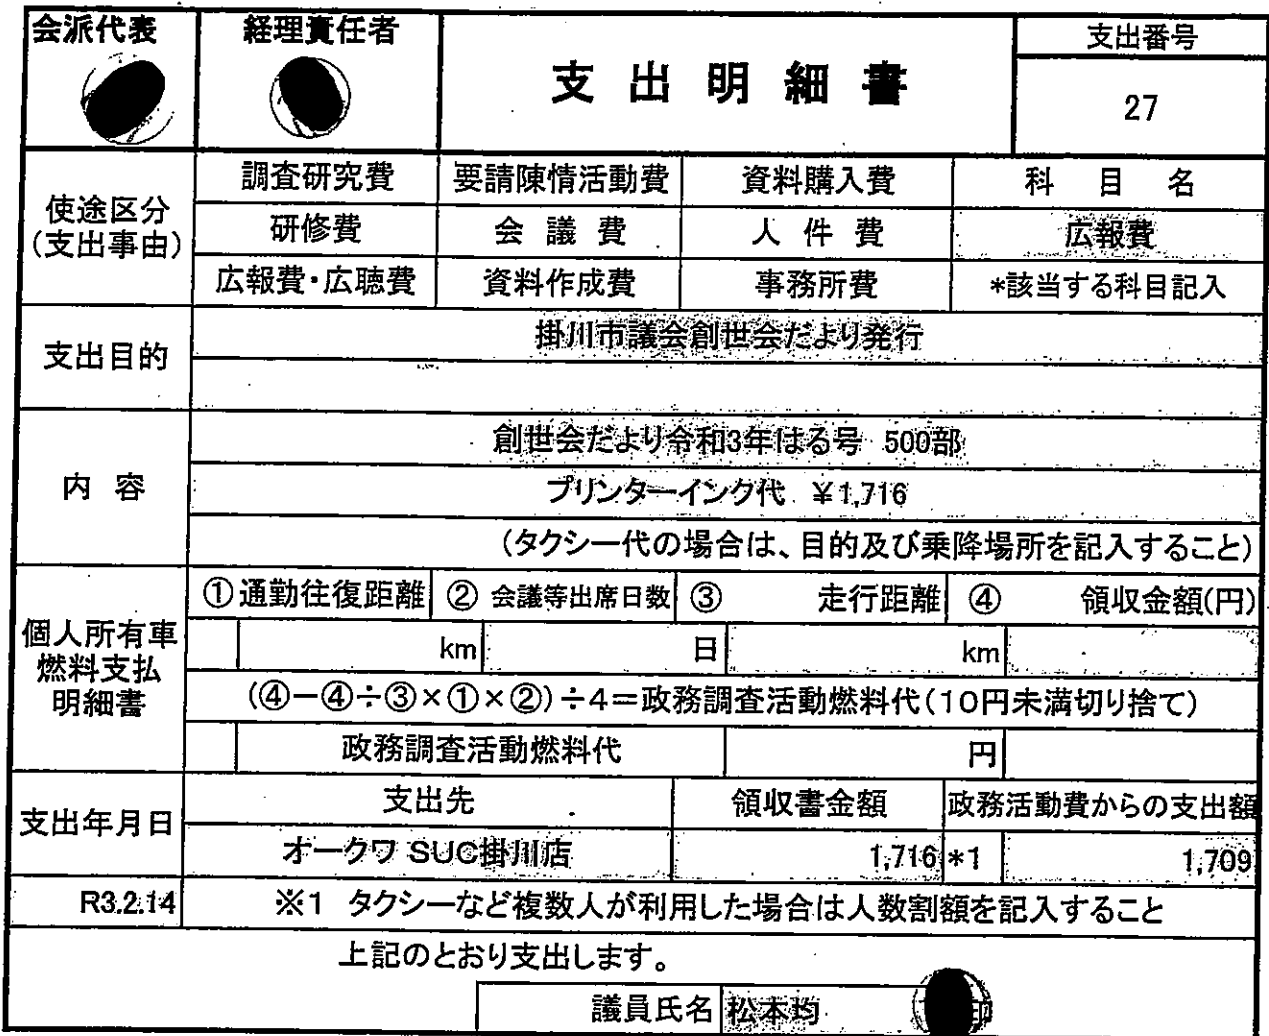 会派代表
経理責任者
支出明細書
支出番号
27
使途区分
(支出事由)
調査研究費
要請陳情活動費
資料購入費
科目名
研修費
会議費
人件費
広報費
広報費・広聴費
資料作成費
事務所費
*該当する科目記入
支出目的
掛川市議会創世会だより発行
内容
創世会だより令和3年はる号 500部
プリンターインク代 ¥1,716
(タクシー代の場合は、目的及び乗降場所を記入すること)
個人所有車
燃料支払
明細書
①通勤往復距離
② 会議等出席日数
③ 走行距離
④ 領収金額(円)
km
日
km
(④-④÷③×①×②)÷4=政務調査活動燃料代(10円未満切り捨て)
政務調査活動燃料代
円
支出年月日
支出先
領収書金額
政務活動費からの支出額
オークワ SUC掛川店
1,716
*1
1,709
R3.2.14
※1 タクシーなど複数人が利用した場合は人数割額を記入すること
上記のとおり支出します。
議員氏名
松本均
印